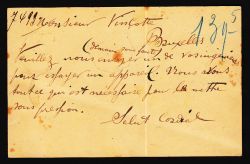 7491 Monsieur Vinçotte
1395
Bruxelles
(demain sans faute)
Veuillez nous envoyer un de vos ingénieurs
pour essayer un appareil. Nous avons
tout ce qui est nécessaire pour le mettre
sous pression.
Salut cordial